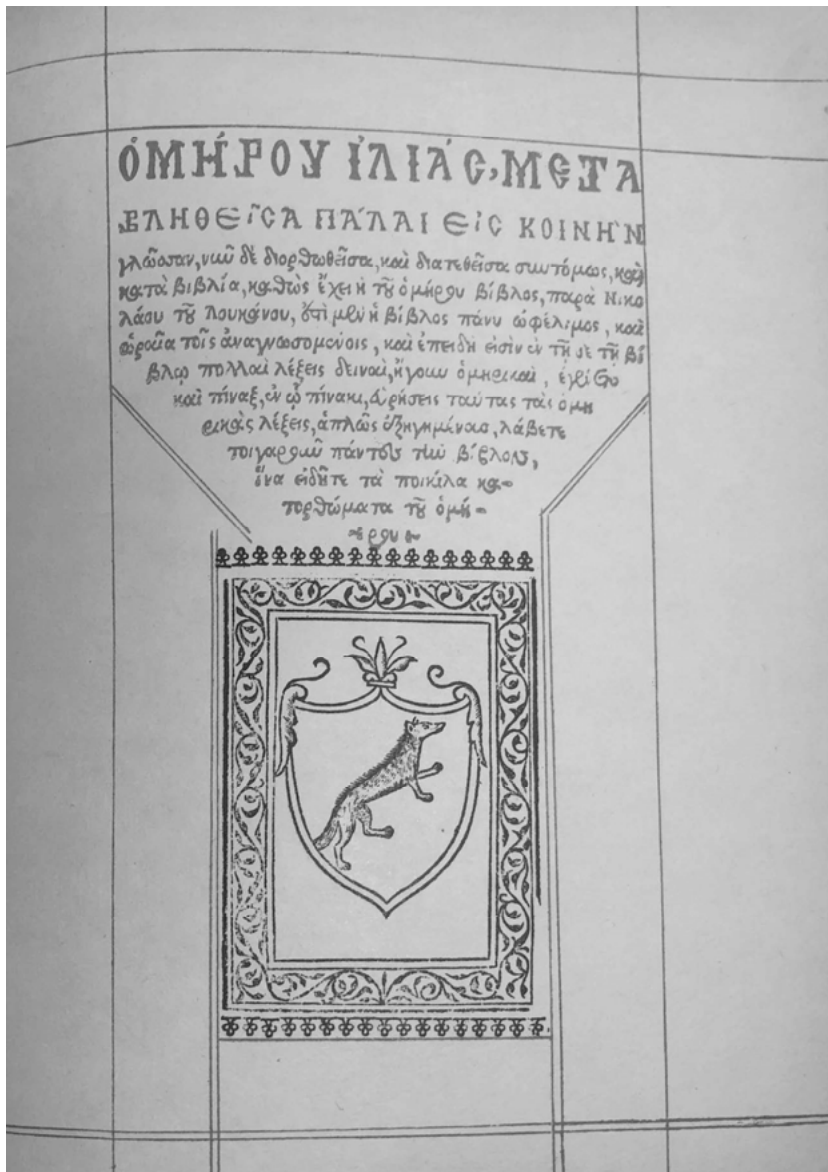 ὉΜΉΡΟΥ ἸΛΙΆC, ΜΕΤΑ
ΒΛΗΘΕῖCΑ ΠΆΛΑΙ ΕἰC ΚΟΙΝῊΝ
γλῶσσαν, νῦν δὲ διορθωθεῖσα, καὶ διατεθεῖσα συντόμως, καὶ
κατὰ βιβλία, καθὼς ἔχει ἡ τοῦ ὁμήρου βίβλος, παρὰ Νικο
λάου τοῦ Λουκάνου, ἔστι μὲν ἡ βίβλος πάνυ ὠφέλιμος, καὶ
ὡραῖα τοῖς ἀναγνωσομένοις, καὶ ἐπειδὴ εἰσὶν ἐν τῇ δὲ τῇ βί
βλῳ πολλαὶ λέξεις δειναὶ, ἤγουν ὁμηρικαὶ, ἐγένετο
καὶ πίναξ, ἐν ᾧ πίνακι, εὑρήσεις ταύτας τὰς ὁμη
ρικὰς λέξεις, ἁπλῶς ἐξηγημένας, λάβετε
τοιγαροῦν πάντες τὴν βίβλον,
ἵνα εἰδῆτε τὰ ποικίλα κα-
τορθώματα τοῦ ὁμή-
ρου